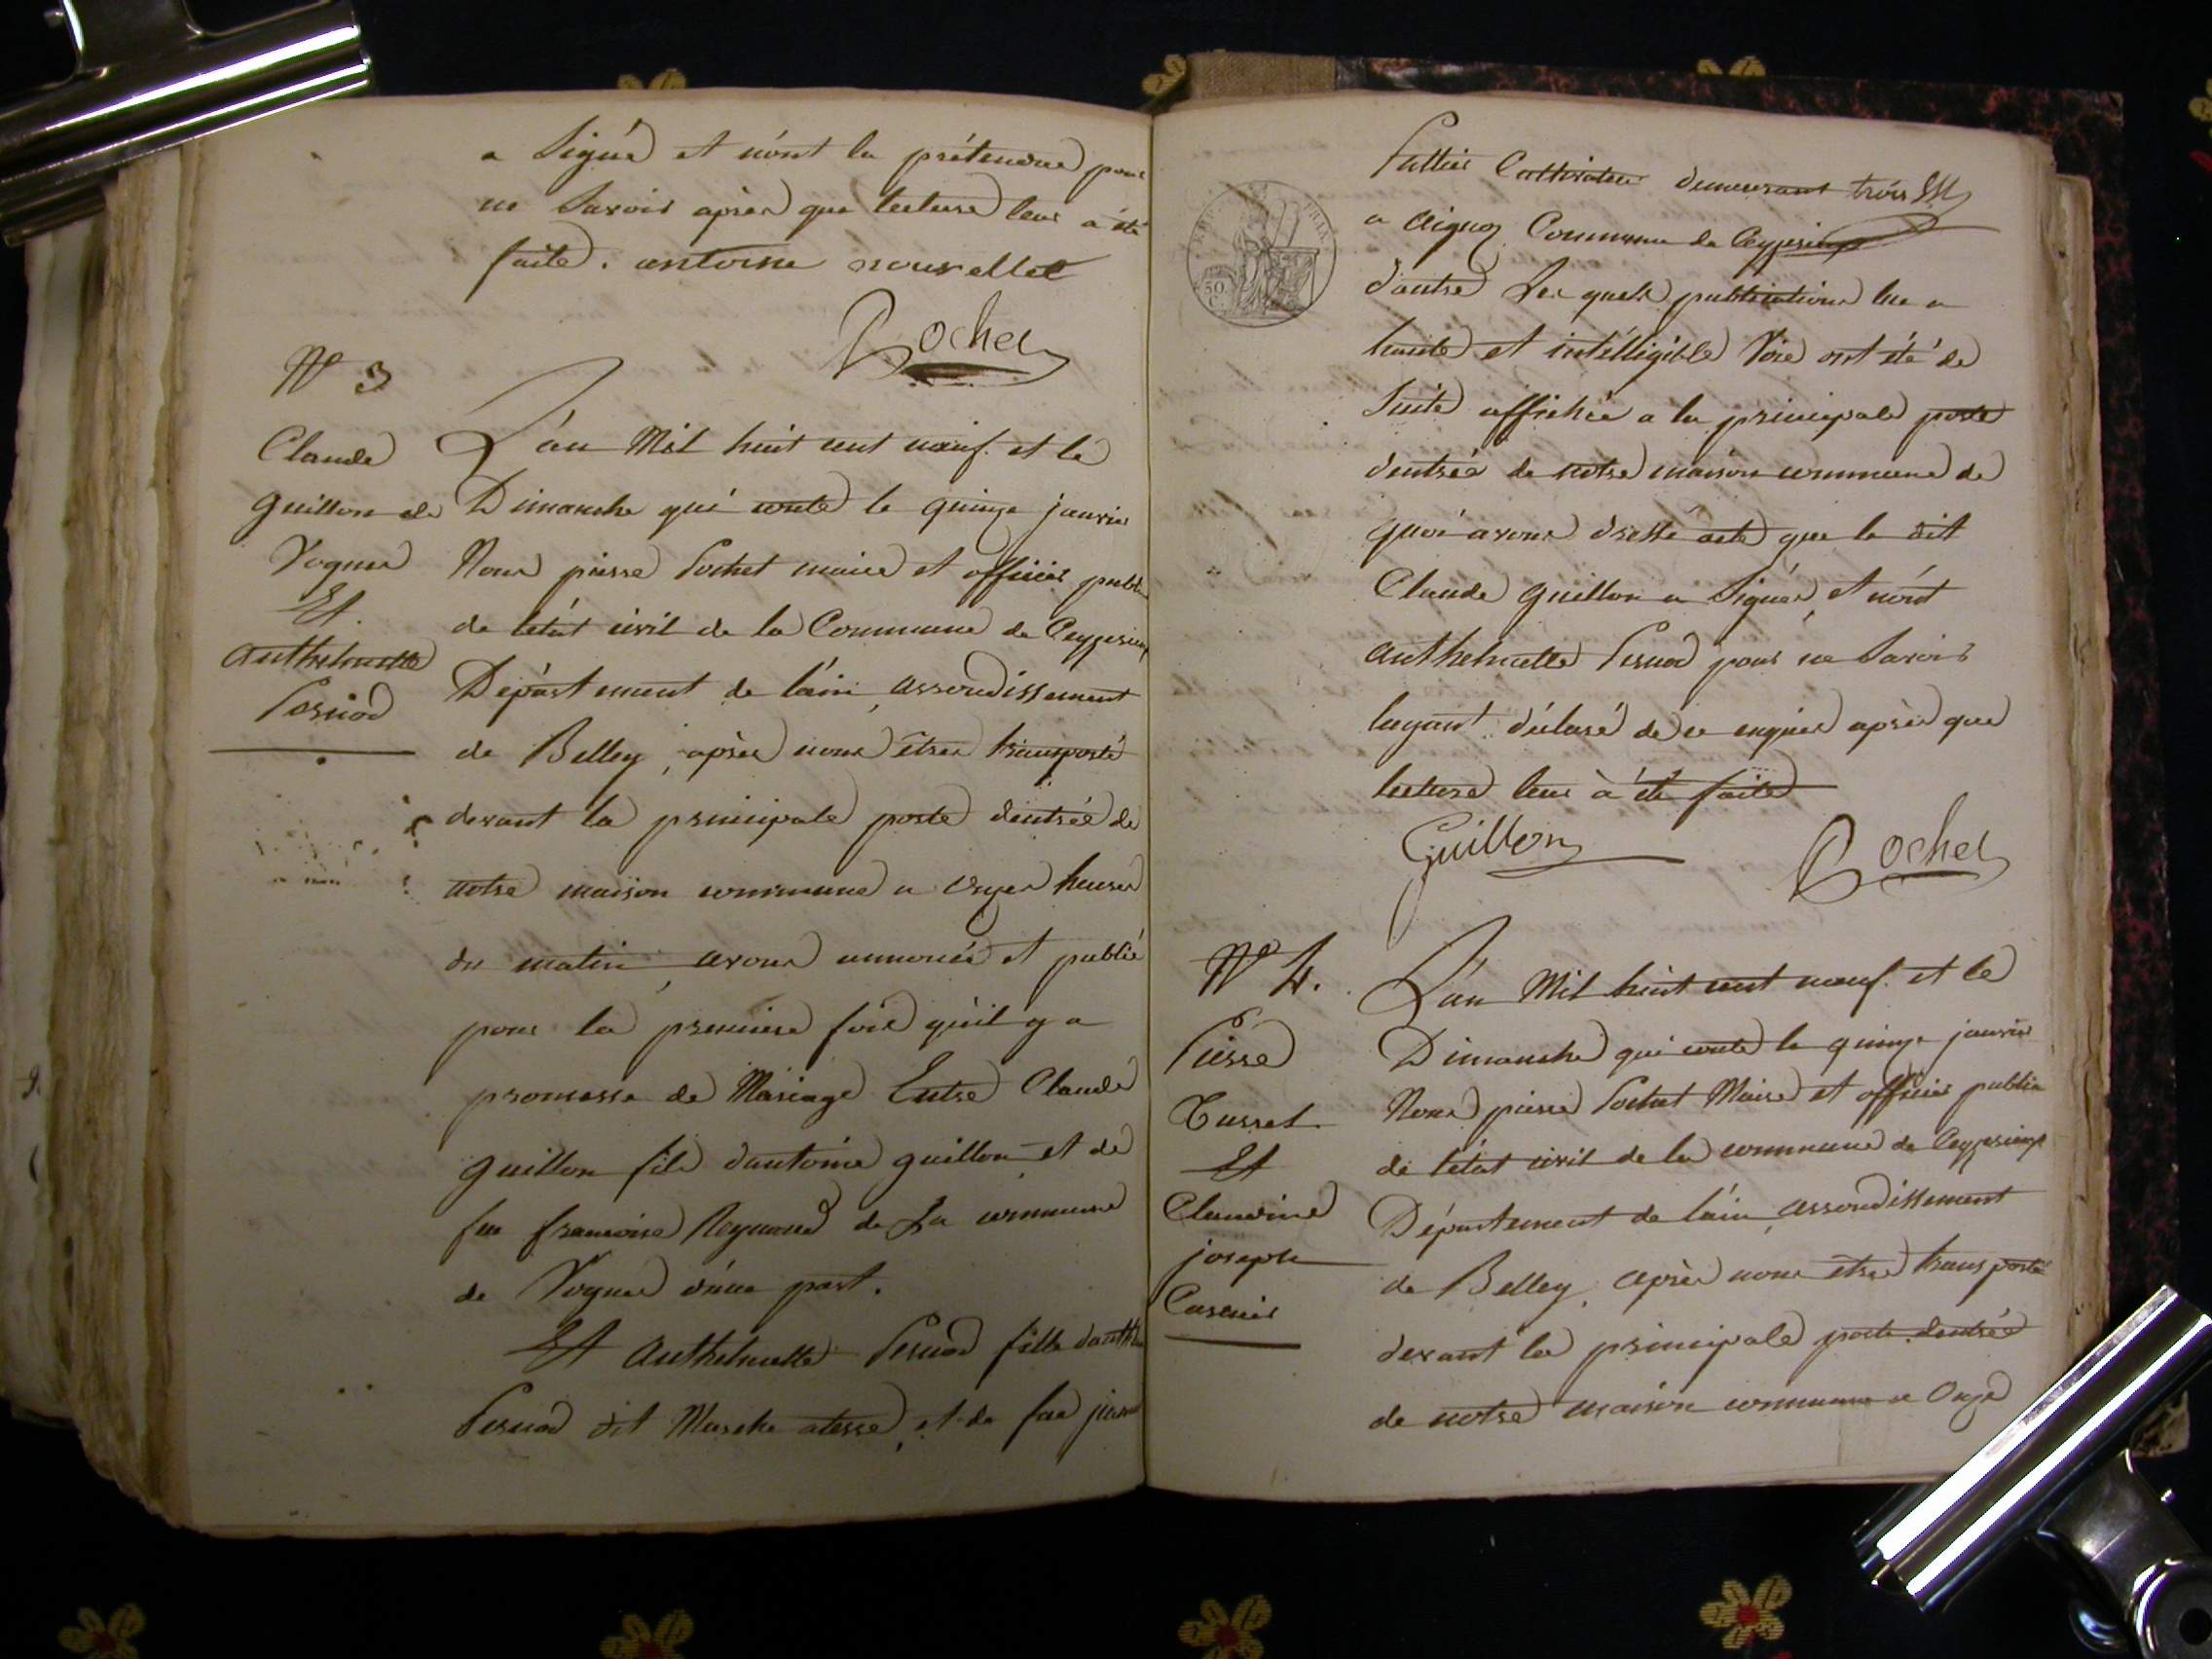 a Signé et nònt la prétendue pour
ne Savoir après que lecture leur a été
faite. antoine nouvellet
Rochet
Nº 3
Claude
guillon de
Vognes
Et
anthelmette
Pernod
L'an Mil huit cent neuf. et le
Dimanche qui conte le quinze janvier
Nous pierre Pochet maire et officier public
de létat civil de la Commune de Ceyzerieux
Département de láin, arrondissement
de Belley, après nous êtres transporté
devant la principale porte déntrée de
notre maison commune a onze heures
du matin, avons annoncé et publié
pour la premiere fois qu'il y a
promesse de Mariage Entre Claude
guillon fils d'antoine guillon et de
feu francoise Reymond de La commune
de Vognes d'une part.
Et anthelmette Pernod fille
Pernod dit et de feu
cultivateur demeurant trois
a aignoz Commune de Ceyzerieux
d'autre Les quels publications lue a
haute et intélligible Voie ont été de
Suite affichée a la principale porte
dentrée de notre maison commune de
quoi avons dressé acte que le dit
Claude guillon a Signer, et nónt
anthelmette Pernod pour ne Savoir
layant déclaré de ce enquier après que
lecture leur à été faite
Guillon
Rochet
Nº 4.
Pierre
Cusset
Et
Claudine
joseph
L'an Mil huit cent neuf. et le
Dimanche qui conte le quinze janvier
Nous pierre Pochet Maire et officier public
de létat civil de la commune de Ceyzerieux
Département de láin, arrondissement
de Belley, après nous etres transporté
devant la principale porte dentrée
de notre maison commune a Onze